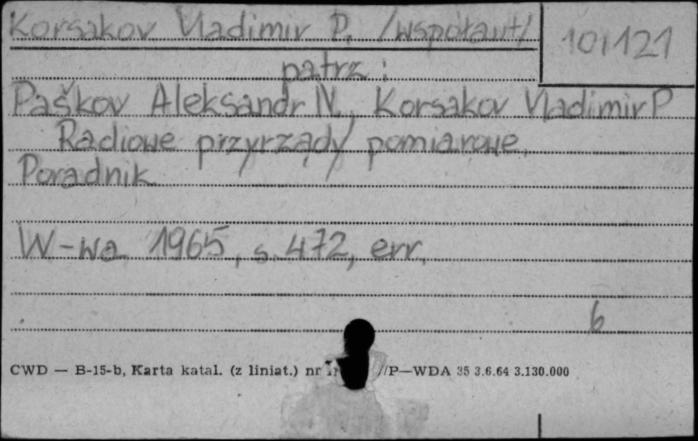 Korsakov Vladimir P. /współaut/
101121
patrz:
Paškov Aleksandr N., Korsakov Vladimir P
Radiowe przyrządy pomiarowe.
Poradnik
W-wa 1965, s. 472, err.
6
CWD — B-15-b, Karta katal. (z liniat.) nr /P—WDA 35 3.6.64 3.130.000